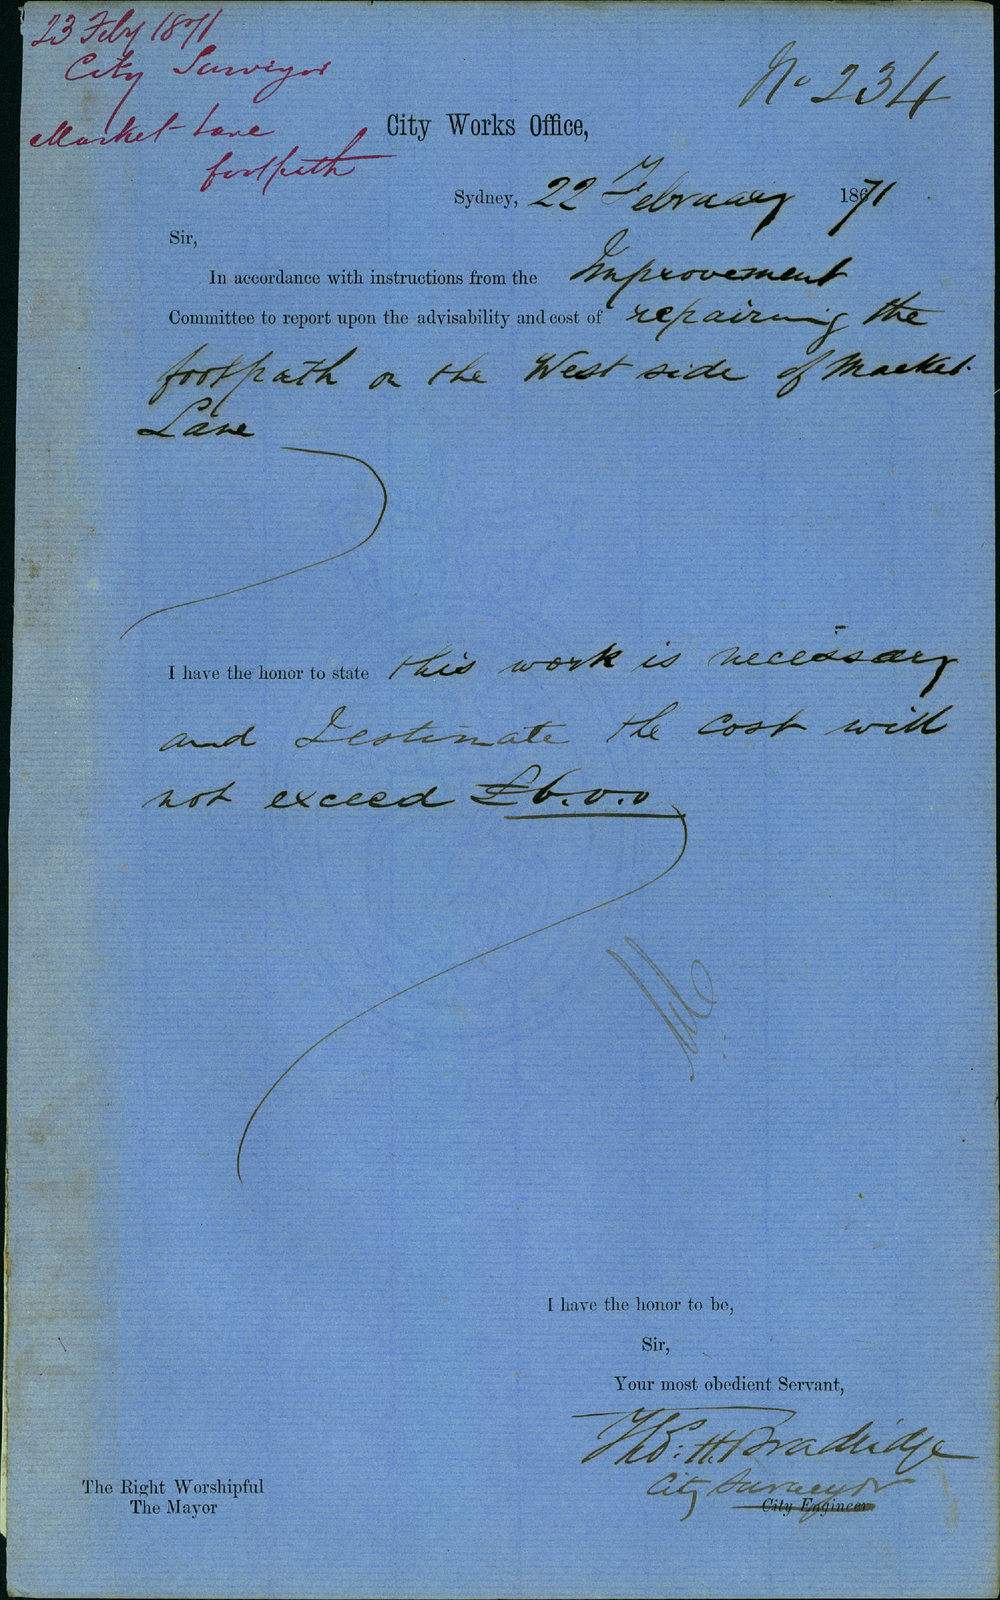 23 Feby 1871
City Surveyor
Market Lane
footpath
No 234
City Works Office,
Sydney, 22 February 1871
Sir,
In accordance with instructions from the Improvement
Committee to report upon the advisability and cost of repairing the
footpath on the West side of Market
Lane
I have the honor to state this work is necessary
and I estimate the cost will
not exceed £6.0.0
I have the honor to be,
Sir,
Your most obedient Servant,
Thos. H. Bradridge
City Surveyor
City Engineer
The Right Worshipful
The Mayor